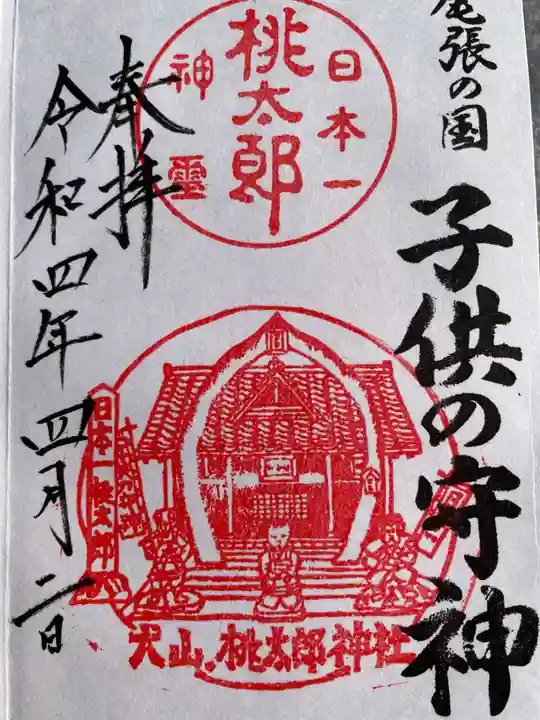 尾張の国
子供の守神
日本一
桃太郎
神霊
日本一桃太郎
犬山.桃太郎神社
奉拝
令和四年四月二日